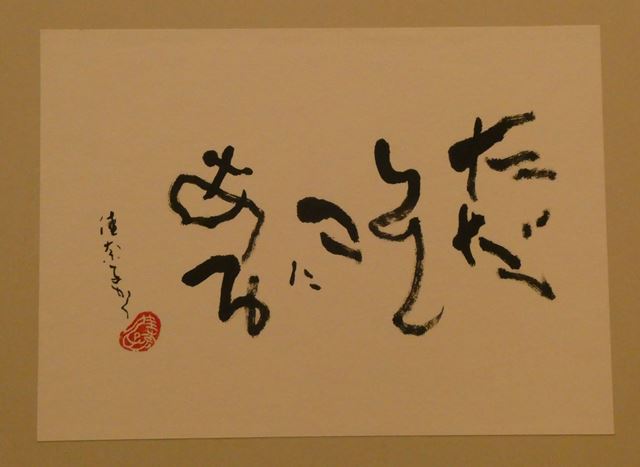 ただ
そこ
に
ある
佳奈子かく